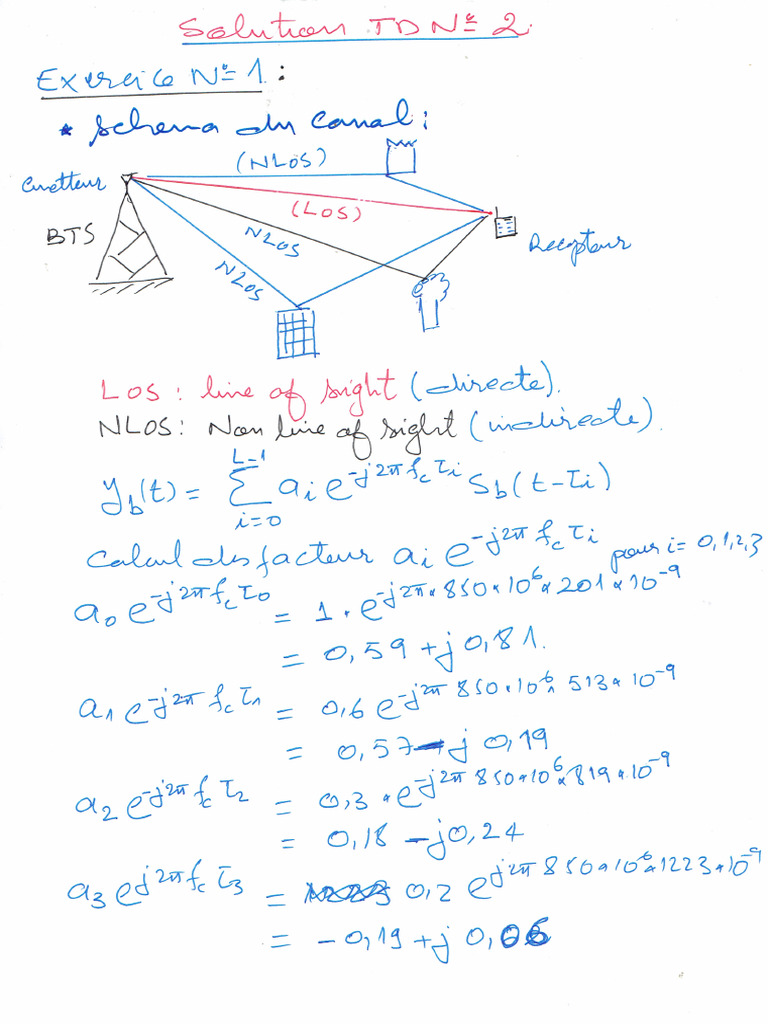 Solution TD N° 2.
Exercice N° 1 :
* Schema du Canal :
(NLOS)
Emetteur
(LOS)
BTS
NLOS
Recepteur
NLOS
LOS : line of sight (directe).
NLOS : Non line of sight (indirecte).
y_b(t) = \sum_{i=0}^{L-1} a_i e^{-j2π f_c τ_i} S_b(t-τ_i)
Calcul des facteur a_i e^{-j2π f_c τ_i} pour i = 0,1,2,3
a_0 e^{-j2π f_c τ_0} = 1 . e^{-j2π × 850 × 10^6 × 201 × 10^{-9}}
= 0,59 + j 0,81.
a_1 e^{-j2π f_c τ_1} = 0,6 e^{-j2π 850 × 10^6 × 513 × 10^{-9}}
= 0,57 - j 0,19
a_2 e^{-j2π f_c τ_2} = 0,3 . e^{-j2π 850 × 10^6 × 819 × 10^{-9}}
= 0,18 - j 0,24
a_3 e^{j2π f_c τ_3} = 0,2 e^{j2π 850 × 10^6 × 1223 × 10^{-9}}
= - 0,19 + j 0,06